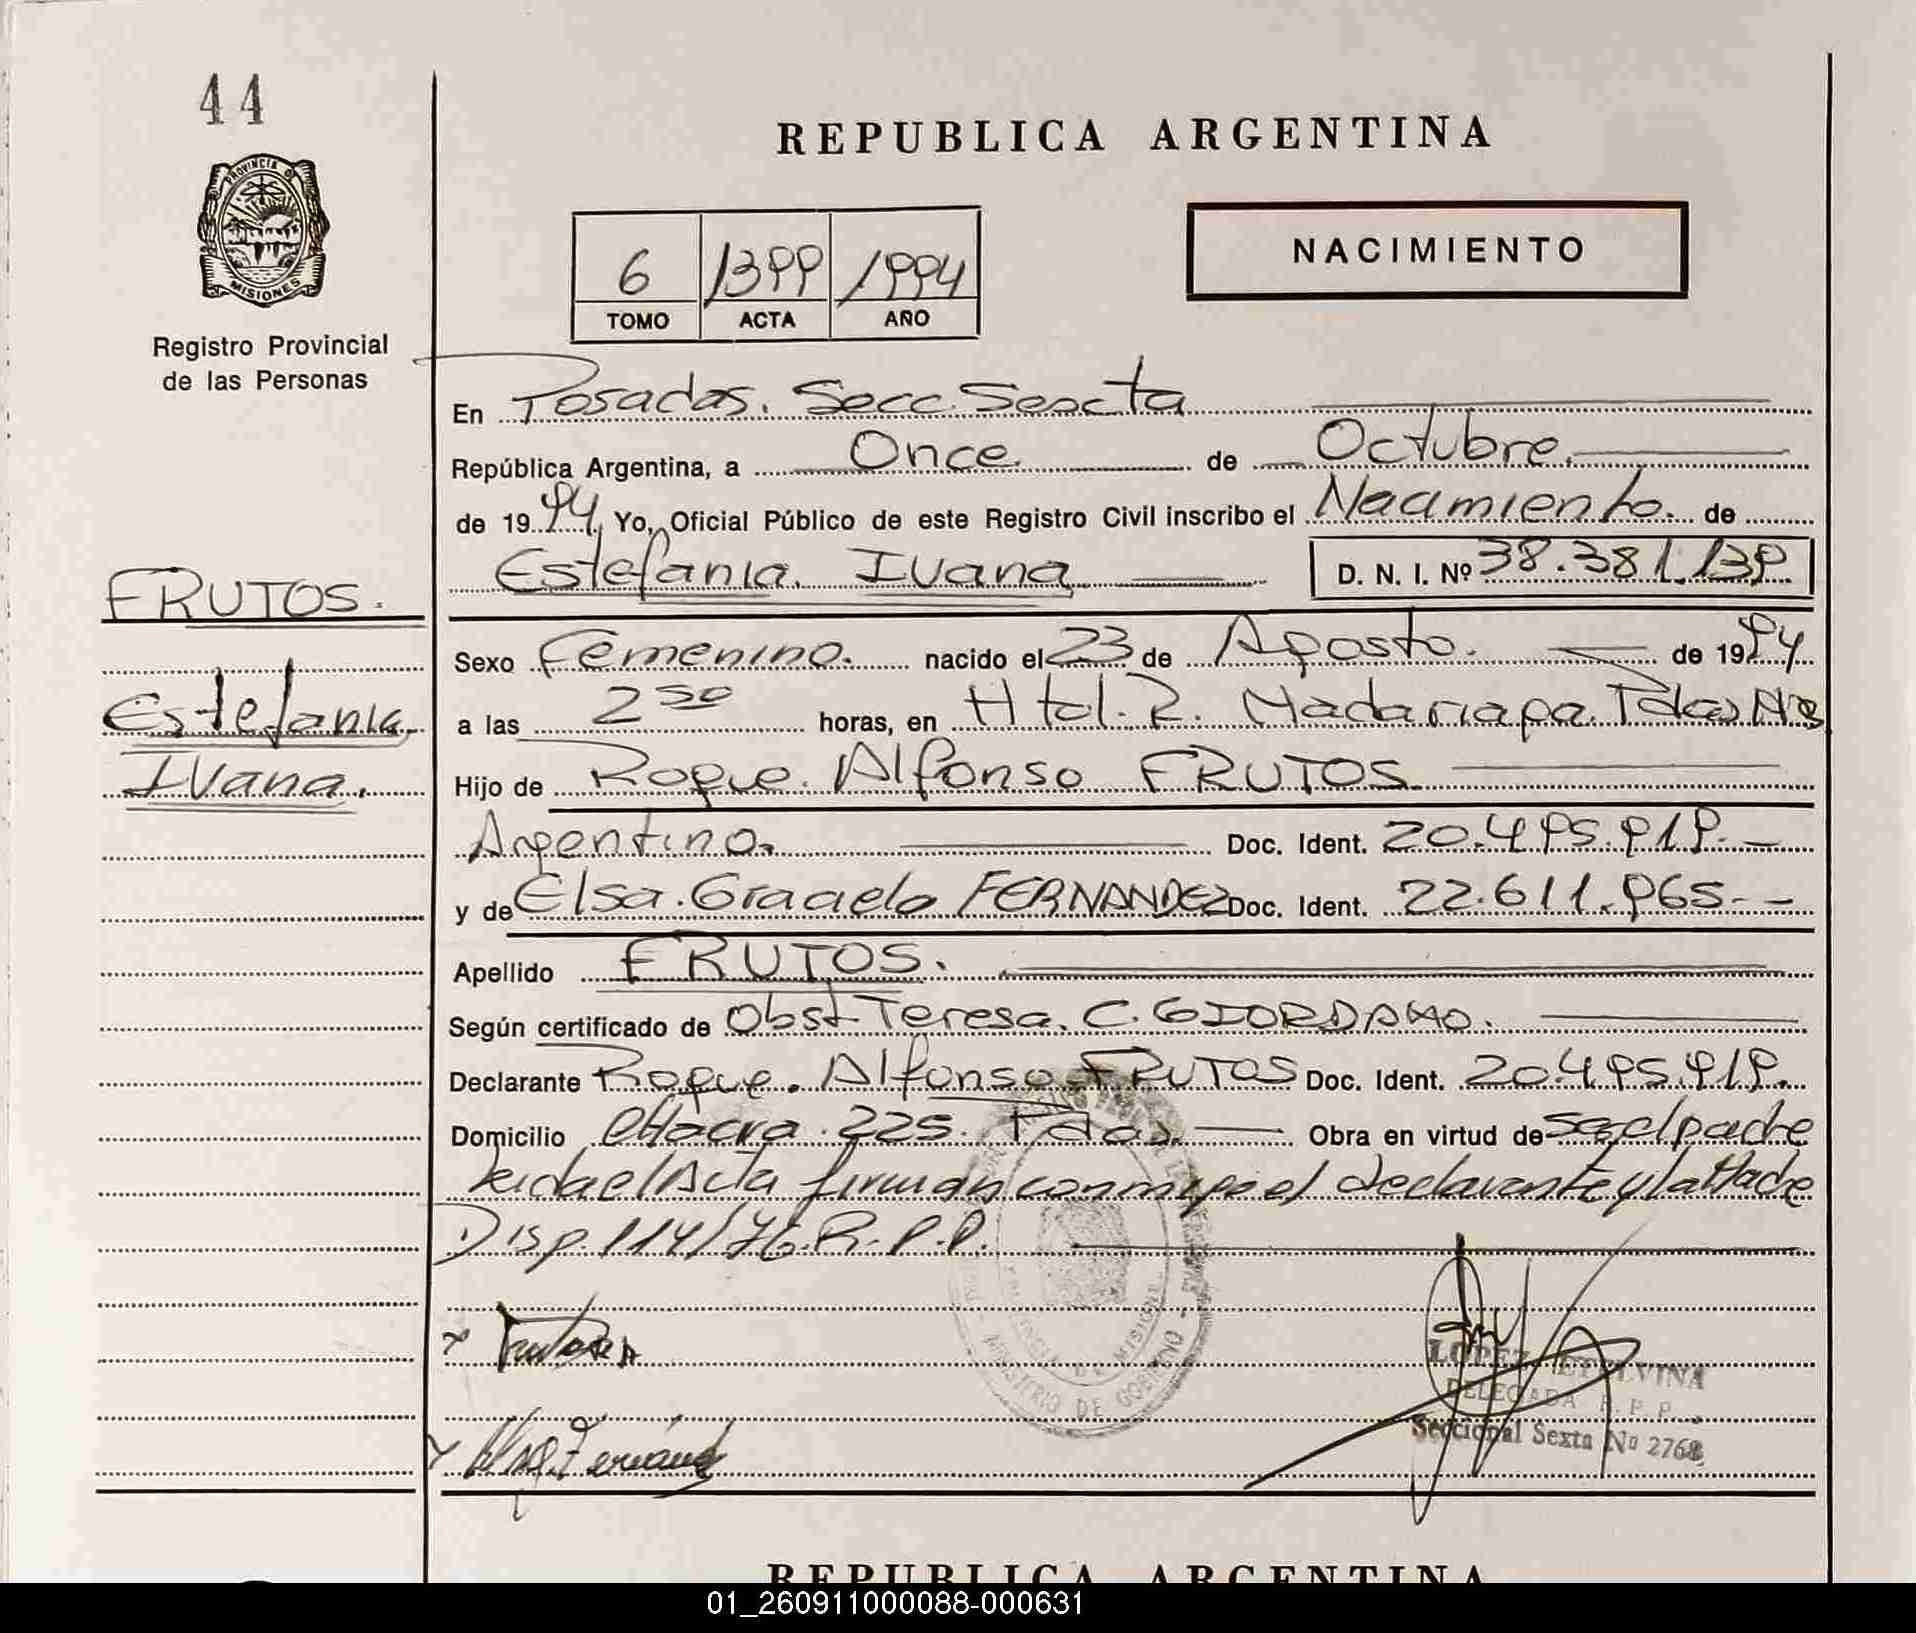 44
REPUBLICA ARGENTINA
PROVINCIA DE
MISIONES
NACIMIENTO
6 1399 1994
TOMO ACTA AÑO
Registro Provincial
de las Personas
En Posadas. Secc. Sexta
República Argentina, a Once. de Octubre.
de 1994. Yo, Oficial Público de este Registro Civil inscribo el Nacimiento. de
Estefania. Ivana D. N. I. Nº 38.381.139
FRUTOS.
Estefania,
Ivana.
Sexo Femenino. nacido el 23 de Agosto. de 1994
a las 2 30 horas, en Htal. R. Madariaga. Pdas Mnes
Hijo de Roque. Alfonso FRUTOS
Argentino. Doc. Ident. 20.495.919.
y de Elsa. Graciela FERNANDEZ Doc. Ident. 22.611.965.
Apellido FRUTOS.
Según certificado de Obst Teresa. C. GIORDANO.
Declarante Roque. Alfonso FRUTOS Doc. Ident. 20.495.919.
Domicilio Chacra. 225. Pdas. Obra en virtud de ser el padre
Leida el Acta firman conmigo el declarante y la Madre
Disp. 114/76. R. P. P.
MINISTERIO DE GOBIERNO
LOPEZ ETELVINA
DELEGADA R. P. P.
Seccional Sexta Nº 2768
REPUBLICA ARGENTINA
01_260911000088-000631